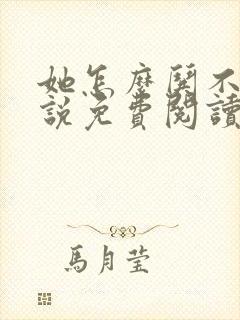 她怎麼鬨不
說免費閱讀
馬月瑩